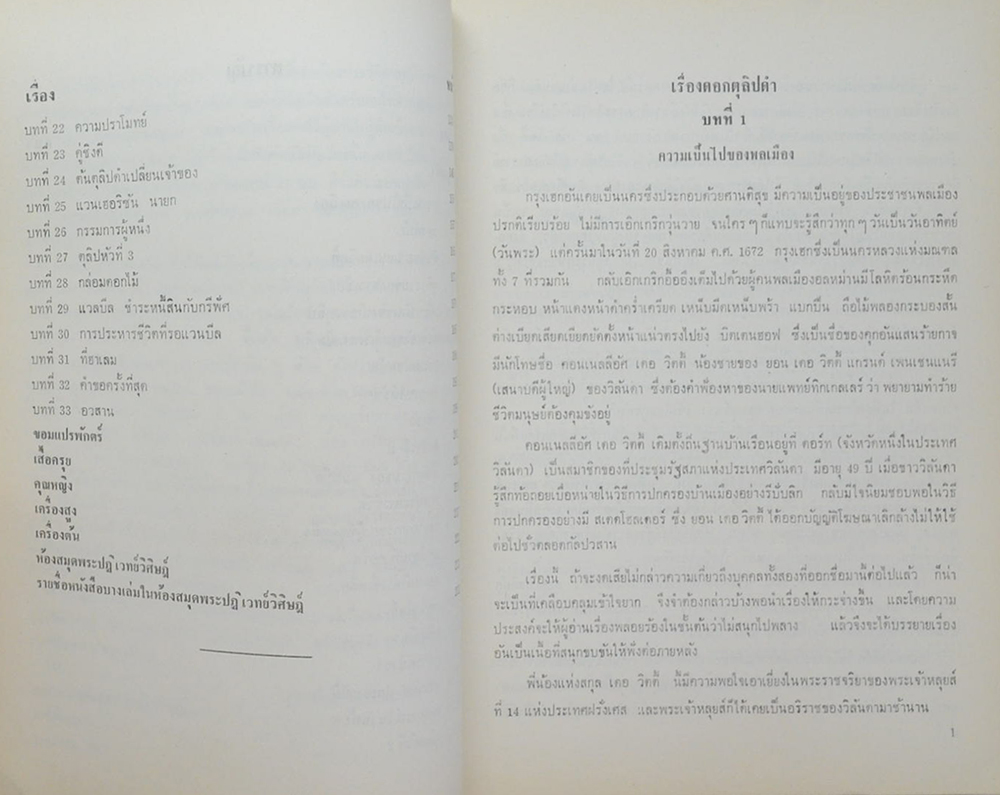 เรื่อง
บทที่ 22 ความปราโมทย์
บทที่ 23 คู่ชิงดี
บทที่ 24 ต้นตุลิปดำเปลี่ยนเจ้าของ
บทที่ 25 แวนเฮอริซัน นายก
บทที่ 26 กรรมการผู้หนึ่ง
บทที่ 27 ตุลิปหัวที่ 3
บทที่ 28 กล่อมดอกไม้
บทที่ 29 แวลบีล ชำระหนี้สินกับกรีฟัศ
บทที่ 30 การประหารชีวิตที่รอแวนบีล
บทที่ 31 ที่ฮาเลม
บทที่ 32 คำขอครั้งที่สุด
บทที่ 33 อวสาน
ขอมแปรพักตร์
เสือครุย
คุณหญิง
เครื่องสูง
เครื่องต้น
ห้องสมุดพระปฏิเวทย์วิศิษฎ์
รายชื่อหนังสือบางเล่มในห้องสมุดพระปฏิเวทย์วิศิษฎ์
เรื่องดอกตุลิปดำ
บทที่ 1
ความเป็นไปของพลเมือง
กรุงเฮกอันเคยเป็นนครซึ่งประกอบด้วยศานติสุข มีความเป็นอยู่ของประชาชนพลเมือง
ปรกติเรียบร้อย ไม่มีการเอิกเกริกวุ่นวาย จนใคร ๆ ก็แทบจะรู้สึกว่าทุก ๆ วันเป็นวันอาทิตย์
(วันพระ) แต่ครั้นมาในวันที่ 20 สิงหาคม ค.ศ. 1672 กรุงเฮกซึ่งเป็นนครหลวงแห่งมณฑล
ทั้ง 7 ที่รวมกัน กลับเอิกเกริกอื้ออึงเต็มไปด้วยผู้คนพลเมืองอลหม่านมีโลหิตร้อนกระหืด
กระหอบ หน้าแดงหน้าดำคร่ำเครียด เหน็บมีดเหน็บพร้า แบกปืน ถือไม้พลองกระบองสั้น
ต่างเบียดเสียดเยียดยัดตั้งหน้าแน่วตรงไปยัง บิตเตนฮอฟ ซึ่งเป็นชื่อของคุกอันแสนร้ายกาจ
มีนักโทษชื่อ คอนเนลลีอัศ เดอ วิตต์ น้องชายของ ยอน เดอ วิตต์ แกรนด์ เพนเชนแนรี
(เสนาบดีผู้ใหญ่) ของวิลันดา ซึ่งต้องคำฟ้องหาของนายแพทย์ทิกเกลเลร์ ว่า พยายามทำร้าย
ชีวิตมนุษย์ต้องคุมขังอยู่
คอนเนลลีอัศ เดอ วิตต์ เดิมตั้งถิ่นฐานบ้านเรือนอยู่ที่ ดอร์ท (จังหวัดหนึ่งในประเทศ
วิลันดา) เป็นสมาชิกของที่ประชุมรัฐสภาแห่งประเทศวิลันดา มีอายุ 49 ปี เมื่อชาววิลันดา
รู้สึกท้อถอยเบื่อหน่ายในวิธีการปกครองบ้านเมืองอย่างรีปับลิก กลับมีใจนิยมชอบพอในวิธี
การปกครองอย่างมี สเตดโฮลเดอร์ ซึ่ง ยอน เดอ วิตต์ ได้ออกบัญญัติโฆษณาเลิกล้างไม่ให้ใช้
ต่อไปชั่วตลอดกัลปวสาน
เรื่องนี้ ถ้าจะงดเสียไม่กล่าวความเกี่ยวถึงบุคคลทั้งสองที่ออกชื่อมานี้ต่อไปแล้ว ก็น่า
จะเป็นที่เคลือบคลุมเข้าใจยาก จึงจำต้องกล่าวบ้างพอนำเรื่องให้กระจ่างขึ้น และโดยความ
ประสงค์จะให้ผู้อ่านเรื่องพลอยร้องในชั้นต้นว่าไม่สนุกไปพลาง แล้วจึงจะได้บรรยายเรื่อง
อันเป็นเนื้อที่สนุกขบขันให้ฟังต่อภายหลัง
พี่น้องแห่งสกุล เดอ วิตต์ นี้มีความพอใจเอาเยี่ยงในพระราชจริยาของพระเจ้าหลุยส์
ที่ 14 แห่งประเทศฝรั่งเศส และพระเจ้าหลุยส์ก็ได้เคยเป็นอริราชของวิลันดามาช้านาน
1